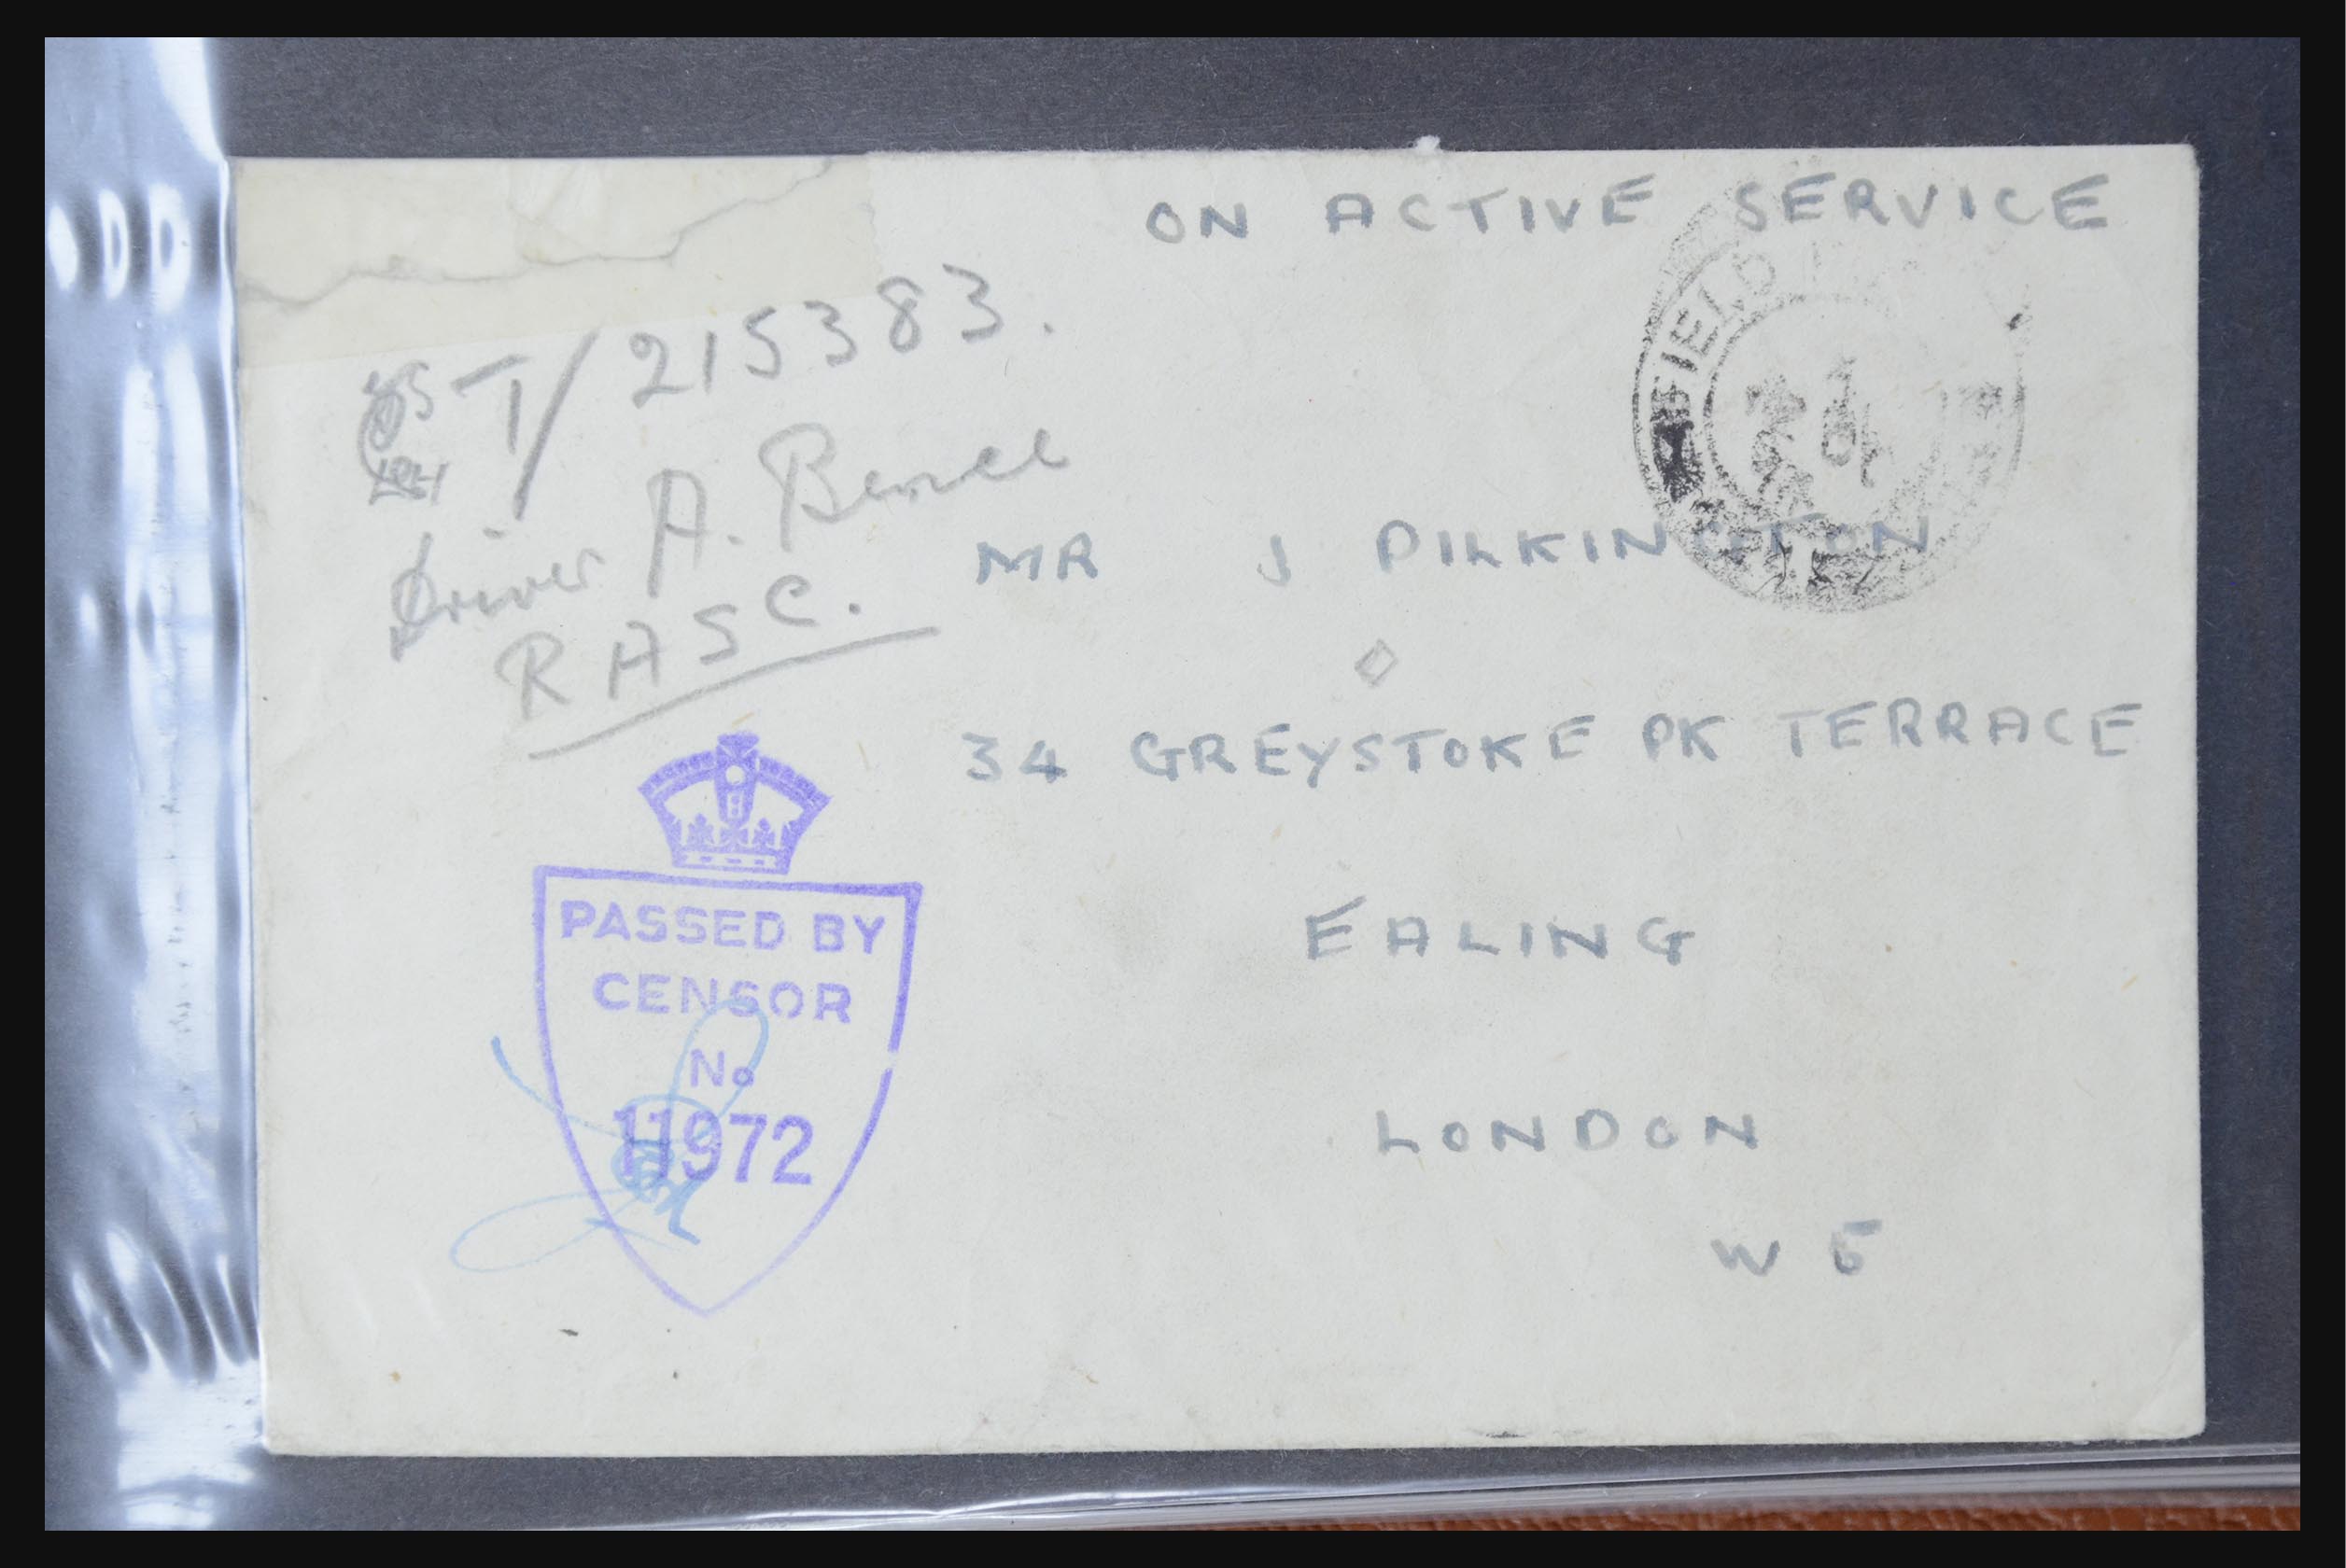 ON ACTIVE SERVICE
FIELD
T/215383.
Driver A.
RASC.
MR J PILKINGTON
34 GREYSTOKE PK TERRACE
EALING
LONDON
W 5
PASSED BY
CENSOR
No
11972